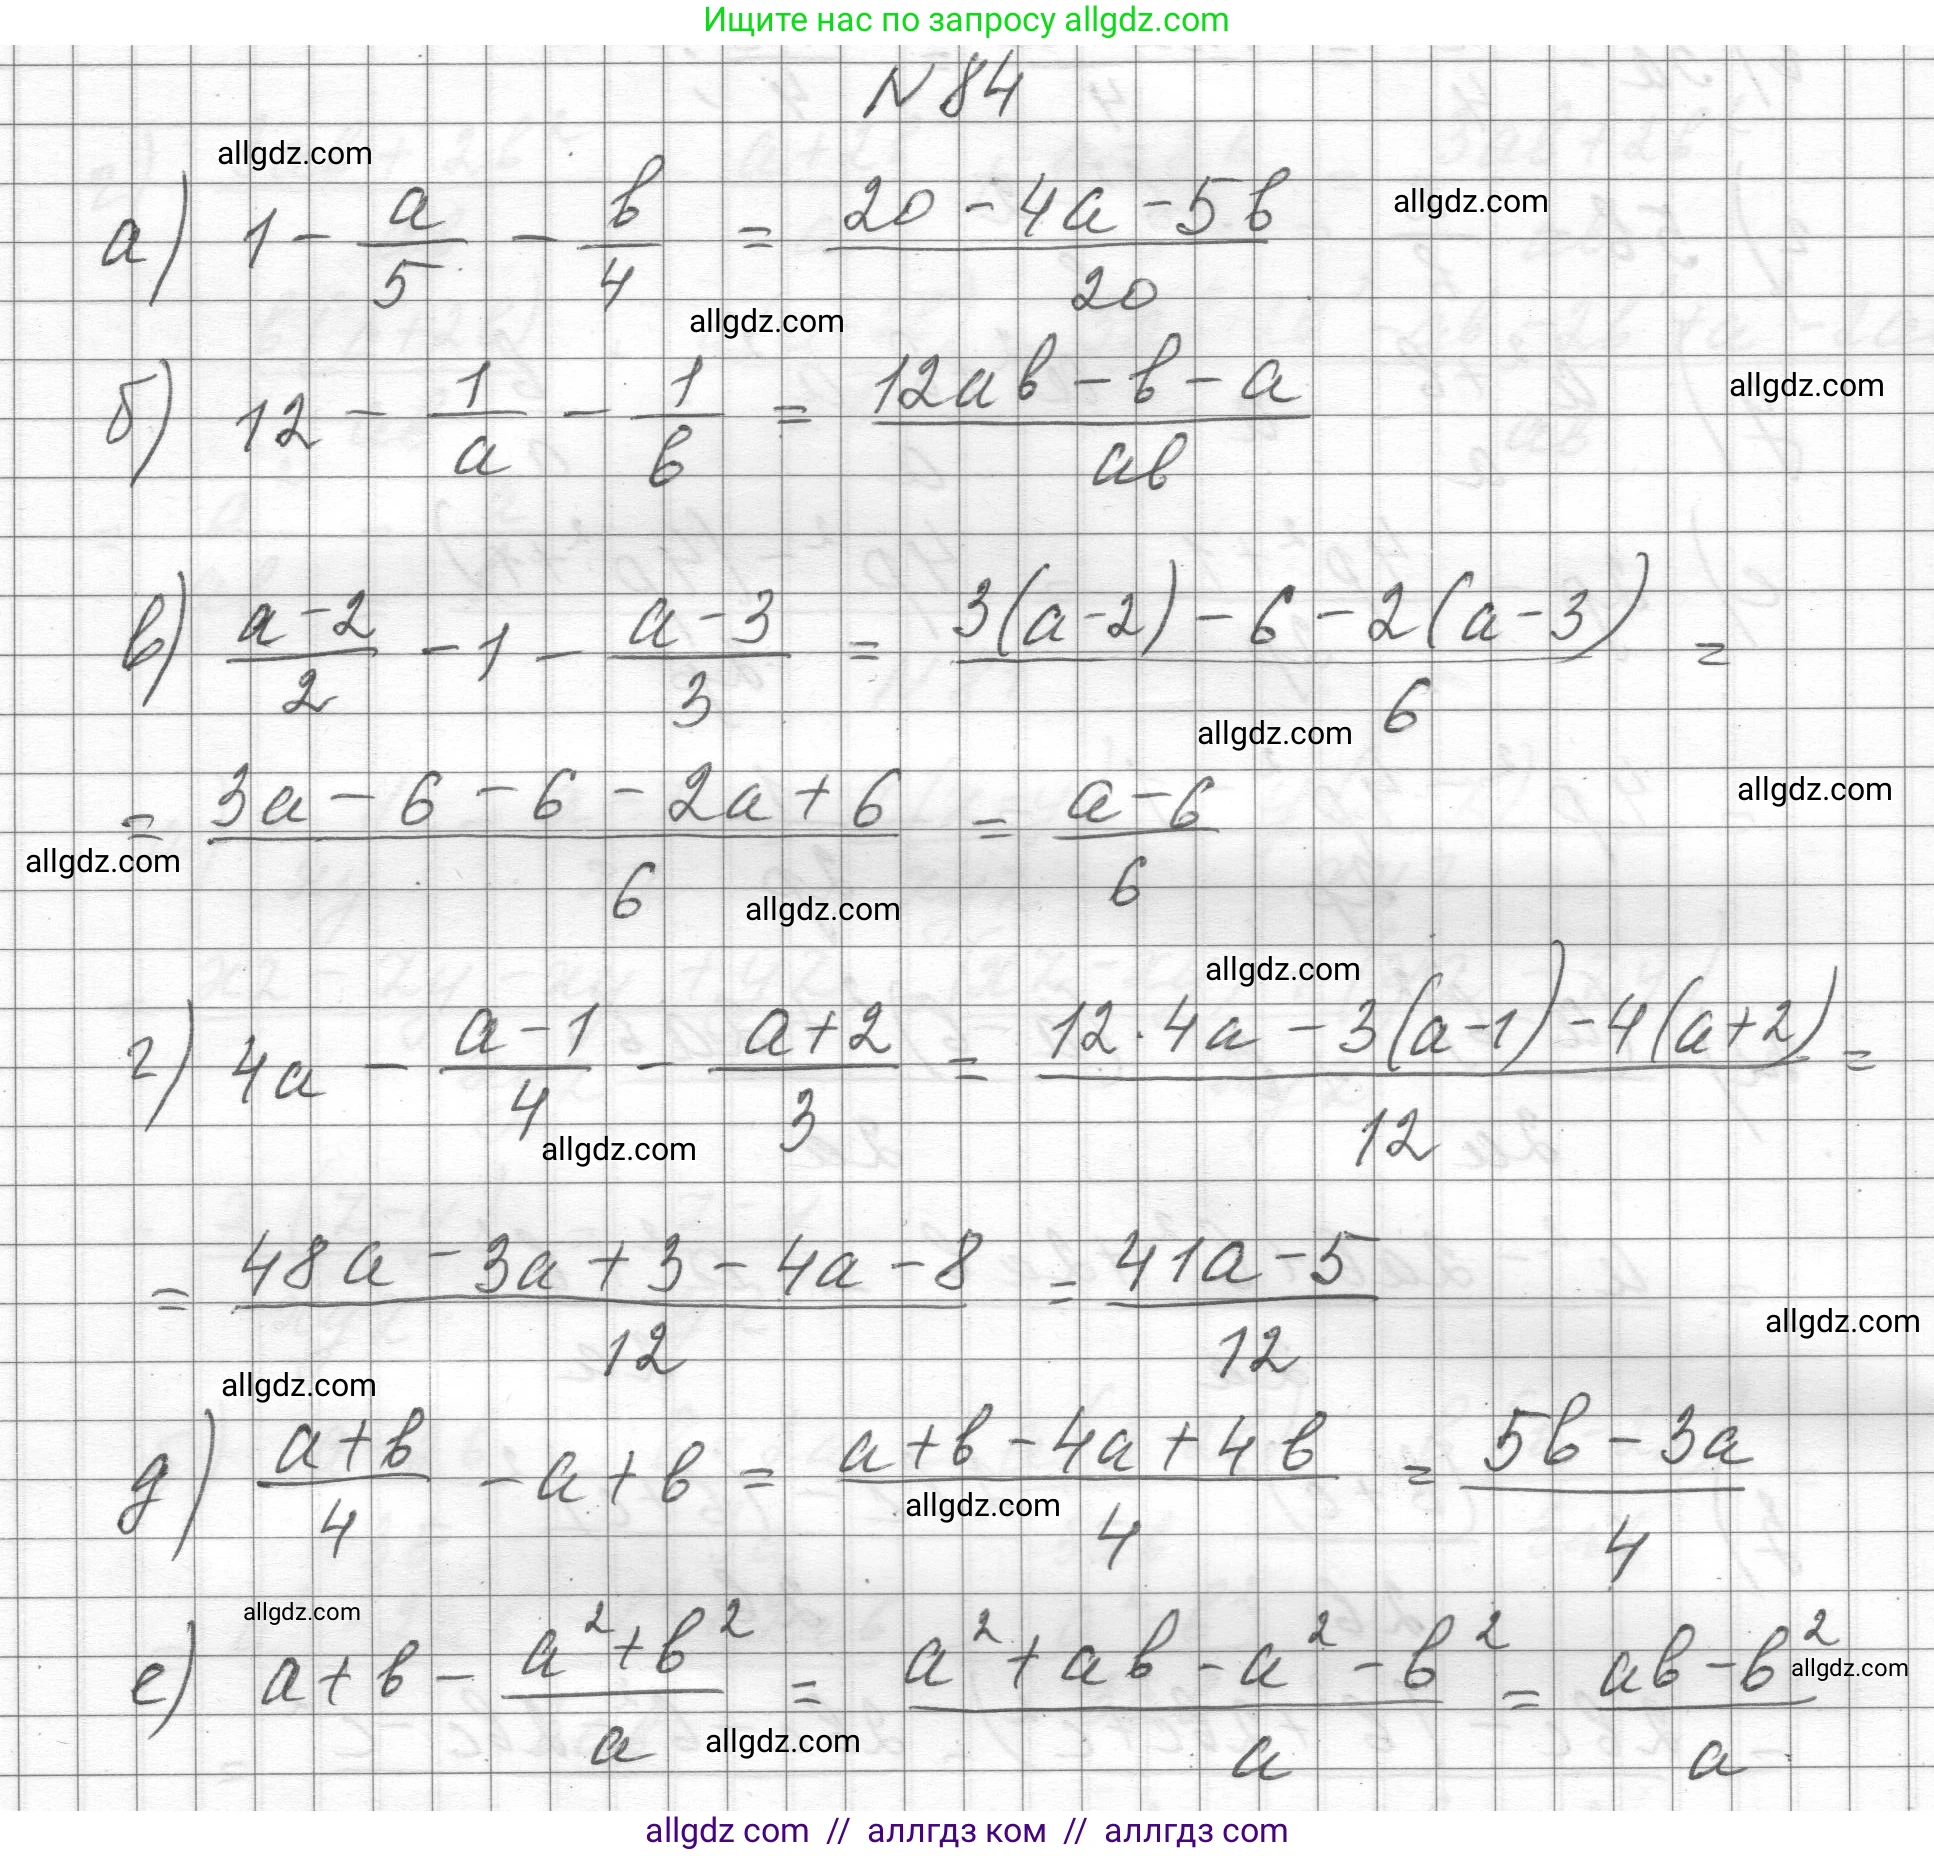 Ищите нас по запросу allgdz.com
N 84
allgdz.com
а) 1 - a/5 - b/4 = (20 - 4a - 5b)/20
allgdz.com
allgdz.com
б) 12 - 1/a - 1/b = (12ab - b - a)/ab
allgdz.com
в) (a-2)/2 - 1 - (a-3)/3 = (3(a-2) - 6 - 2(a-3))/6 =
allgdz.com
= (3a - 6 - 6 - 2a + 6)/6 = (a-6)/6
allgdz.com
allgdz.com
allgdz.com
allgdz.com
г) 4a - (a-1)/4 - (a+2)/3 = (12·4a - 3(a-1) - 4(a+2))/12 =
allgdz.com
= (48a - 3a + 3 - 4a - 8)/12 = (41a - 5)/12
allgdz.com
allgdz.com
д) (a+b)/4 - a + b = (a + b - 4a + 4b)/4 = (5b - 3a)/4
allgdz.com
allgdz.com
е) a + b - (a² + b²)/a = (a² + ab - a² - b²)/a = (ab - b²)/a
allgdz.com
allgdz.com
allgdz com // аллгдз ком // аллгдз com